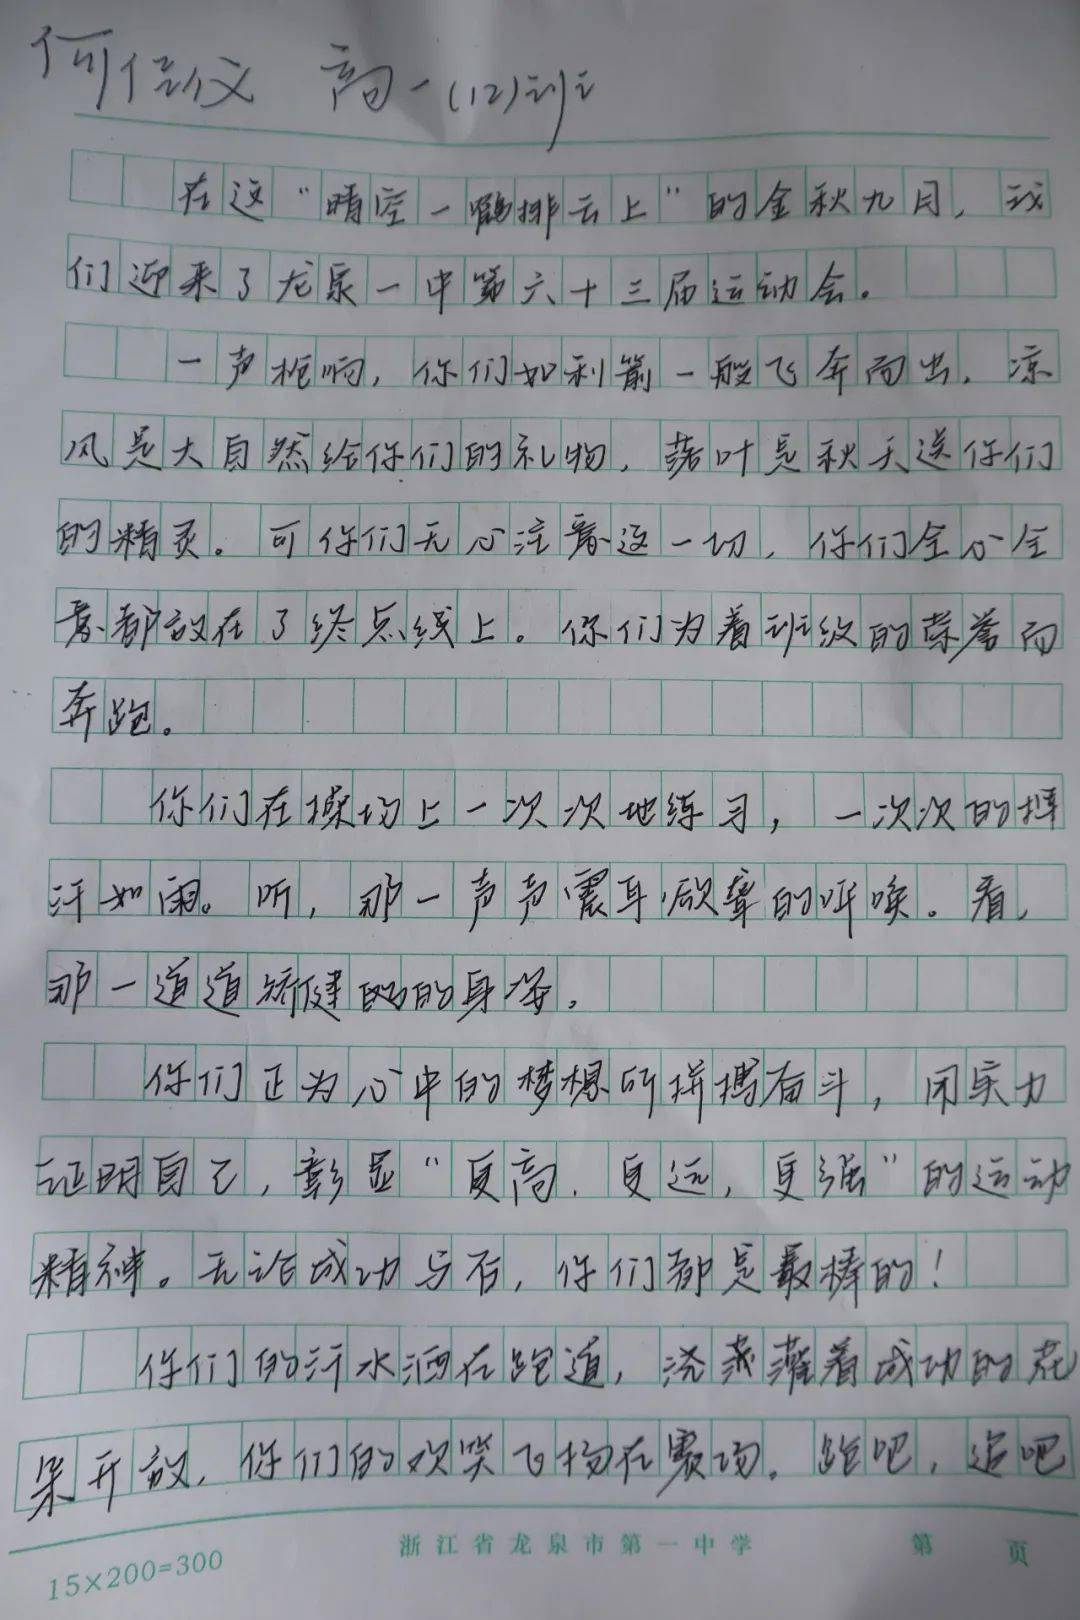 何 高一(12)班
在这“晴空一鹤排云上”的金秋九月，我
们迎来了龙泉一中第六十三届运动会。
一声枪响，你们如利箭一般飞奔而出，凉
风是大自然给你们的礼物，落叶是秋天送你们
的精灵。可你们无心注意这一切，你们全心全
意都放在了终点线上。你们为着班级的荣誉而
奔跑。
你们在操场上一次次地练习，一次次的挥
汗如雨。听，那一声声震耳欲聋的呼唤。看，
那一道道矫健的身姿。
你们正为心中的梦想所拼搏奋斗，用实力
证明自己，彰显“更高．更远，更强”的运动
精神。无论成功与否，你们都是最棒的！
你们的汗水洒在跑道，浇灌着成功的花
朵开放，你们的欢笑飞扬在赛场。跑吧，追吧
浙江省龙泉市第一中学 第 页
15×200=300